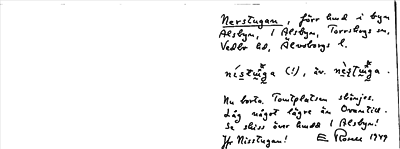 Nerstugan, förr hmd i byn
Älsbyn, 1 Älsbyn, Torrskogs sn,
Vedbo hd, Älvsborgs l.
nístuga (!), äv. nèstuga.
Nu borta. Tomtplatsen skönjes.
Låg något lägre än Ovantill.
Se skiss över hmdd 1 Älsbyn!
Jfr Nisstugan! E 1949